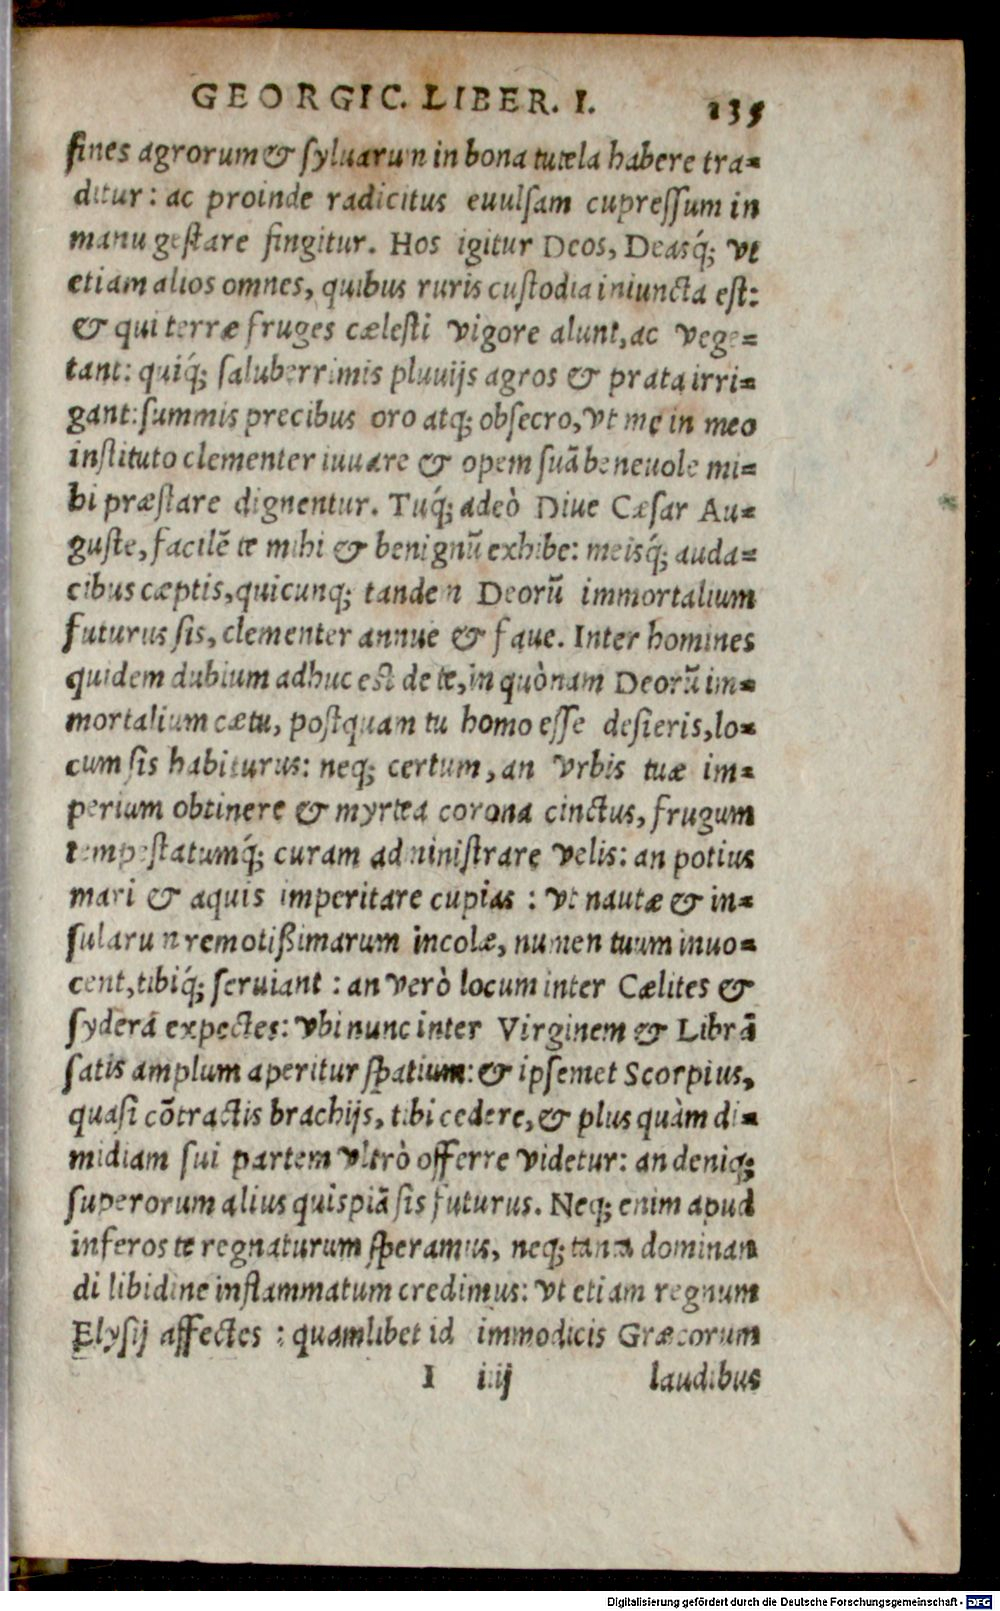 GEORGIC. LIBER. I. 135
fines agrorum & syluarum in bona tutela habere tra=
ditur: ac proinde radicitus euulsam cupressum in
manu gestare fingitur. Hos igitur Deos, Deasq́; vt
etiam alios omnes, quibus ruris custodia iniuncta est:
& qui terræ fruges cælesti vigore alunt, ac vege=
tant: quiq́; saluberrimis pluuijs agros & prata irri=
gant: summis precibus oro atq; obsecro, vt me in meo
instituto clementer iuuare & opem suā beneuole mi=
hi præstare dignentur. Tuq́; adeò Diue Cæsar Au=
guste, facilē te mihi & benignū exhibe: meisq́; auda=
cibus cæptis, quicunq; tandem Deorū immortalium
futurus sis, clementer annue & faue. Inter homines
quidem dubium adhuc est de te, in quònam Deorū im=
mortalium cætu, postquam tu homo esse desieris, lo=
cum sis habiturus: neq; certum, an vrbis tuæ im=
perium obtinere & myrtea corona cinctus, frugum
tempestatumq́; curam administrare velis: an potius
mari & aquis imperitare cupias : vt nautæ & in=
sularum remotißimarum incolæ, numen tuum inuo=
cent, tibiq́; seruiant : an verò locum inter Cælites &
sydera expectes: vbi nunc inter Virginem & Librā
satis amplum aperitur spatium: & ipsemet Scorpius,
quasi cōtractis brachijs, tibi cedere, & plus quàm di=
midiam sui partem vltrò offerre videtur: an deniq;
superorum alius quispiā sis futurus. Neq; enim apud
inferos te regnaturum speramus, neq; tanta dominan
di libidine inflammatum credimus: vt etiam regnum
Elysij affectes : quamlibet id immodicis Græcorum
I iiij laudibus
Digitalisierung gefördert durch die Deutsche Forschungsgemeinschaft - DFG